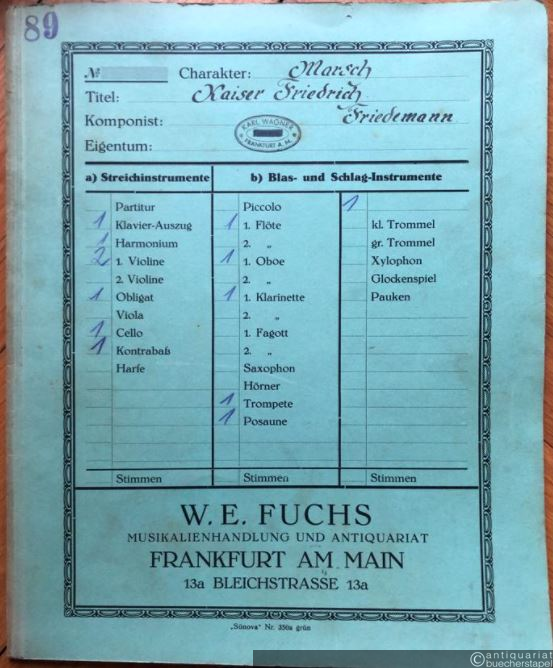 89
№
Charakter: Marsch
Titel: Kaiser Friedrich
Komponist: Friedemann
Eigentum:
KARL WAGNER
FRANKFURT A. M.
a) Streichinstrumente
b) Blas- und Schlag-Instrumente
Partitur
1 Klavier-Auszug
1 Harmonium
2 1. Violine
2. Violine
1 Obligat
Viola
1 Cello
1 Kontrabaß
Harfe
Stimmen
Piccolo
1 1. Flöte
2. „
1 1. Oboe
2. „
1 1. Klarinette
2. „
1. Fagott
2. „
Saxophon
Hörner
1 Trompete
1 Posaune
Stimmen
1
kl. Trommel
gr. Trommel
Xylophon
Glockenspiel
Pauken
Stimmen
W. E. FUCHS
MUSIKALIENHANDLUNG UND ANTIQUARIAT
FRANKFURT AM MAIN
13a BLEICHSTRASSE 13a
„Sünova" Nr. 350a grün
©antiquariat
buecherstapel